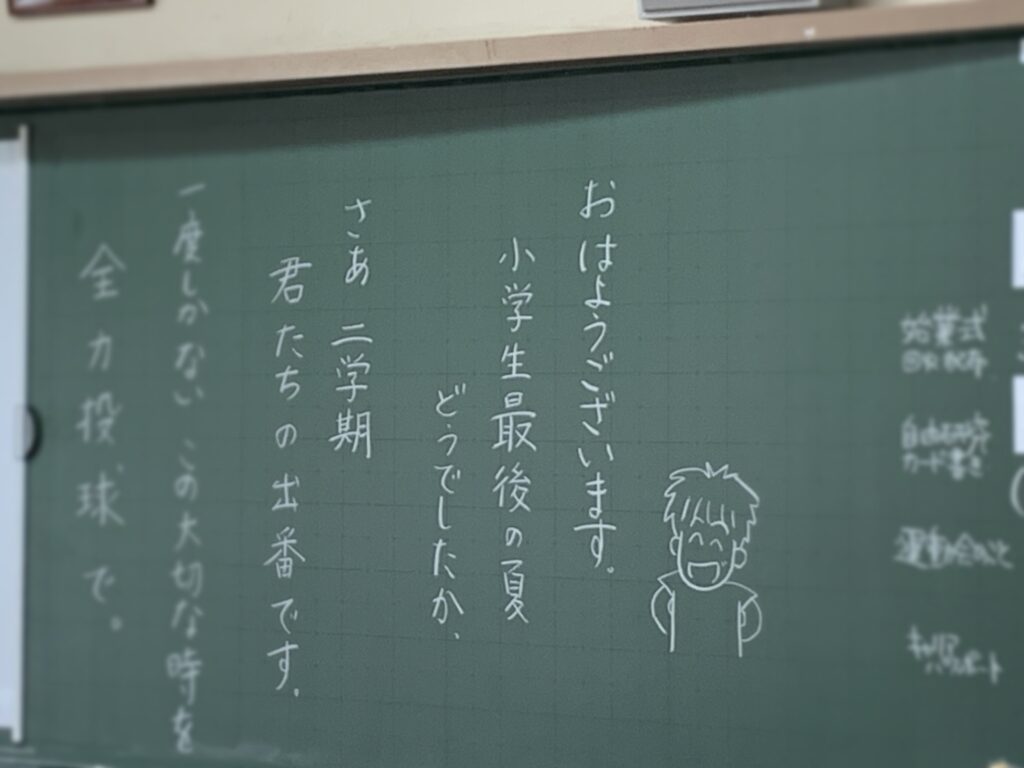 始業式
自由研究
カード書き
運動会のこと
キャリアパスポート
おはようございます。
小学生最後の夏
どうでしたか、
さあ 二学期
君たちの出番です。
一度しかない この大切な時を
全力投球で。